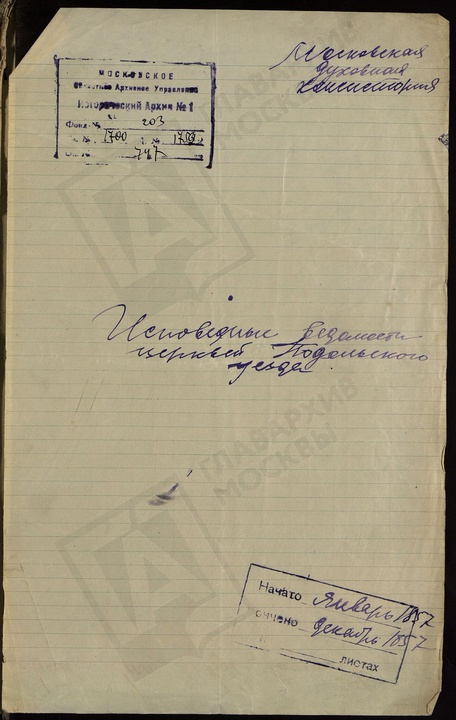 Московская
духовная
консистория
МОСКОВСКОЕ
областное Архивное Управление
Исторический Архив № 1
Фонд № 203
1700 1759
Оп. № 747
Исповедные ведомости
церквей Подольского
уезда
ГЛАВАРХИВ
МОСКВЫ
ГЛАВАРХИВ
МОСКВЫ
Начато Январь 1857
ончено декабрь 1857
листах